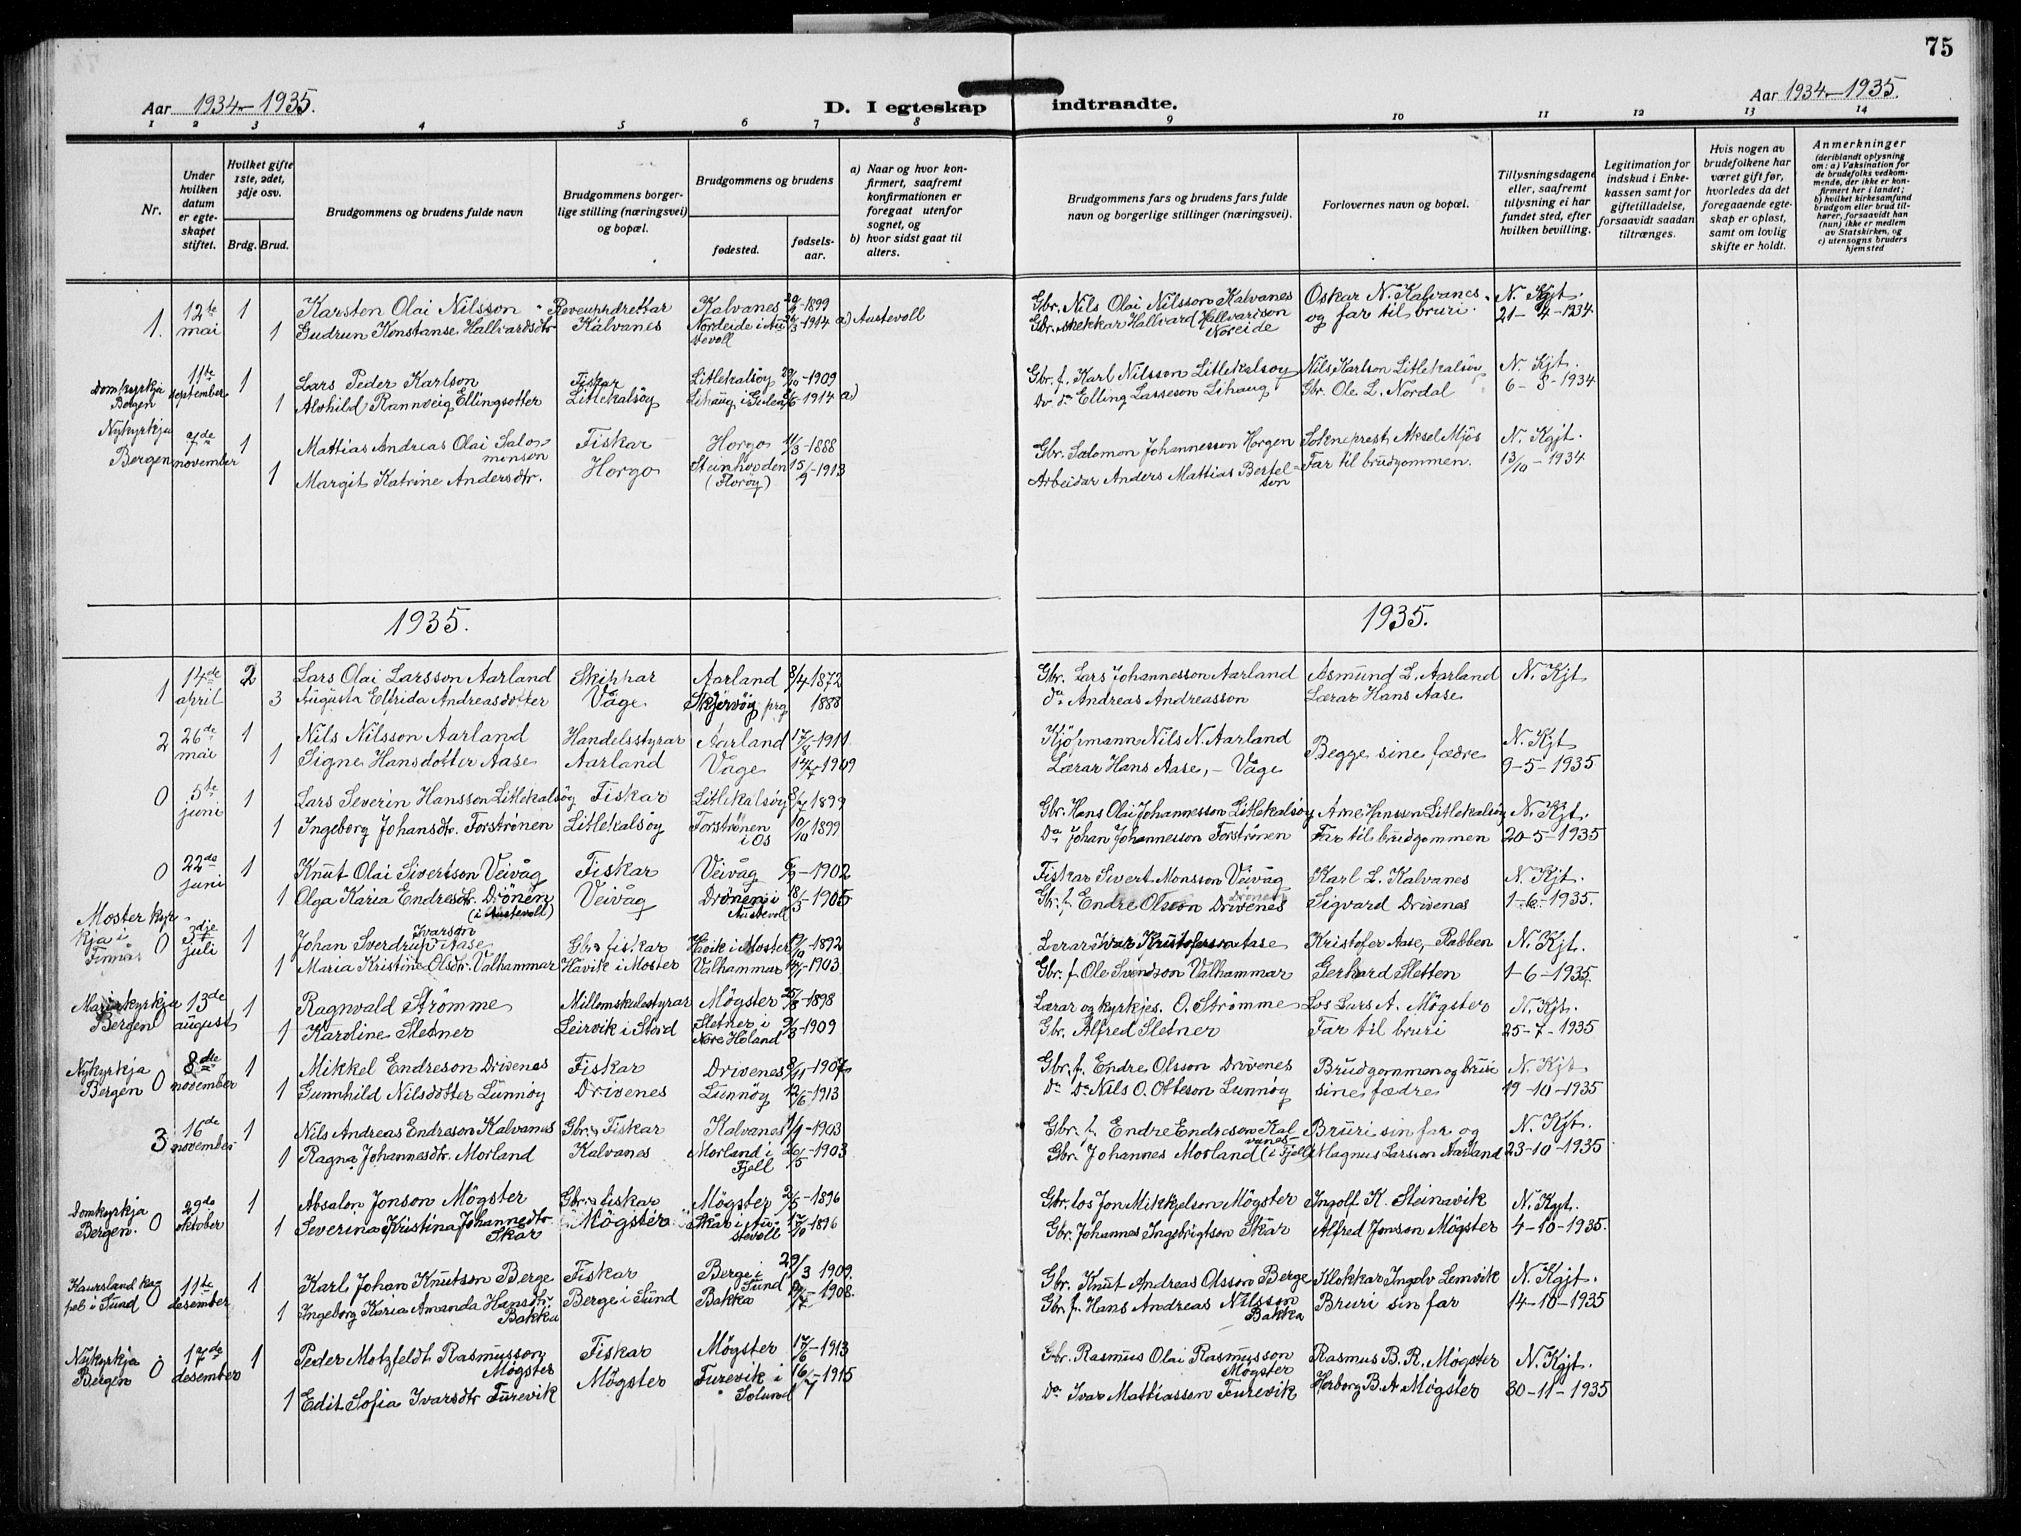 75
Aar 1934–1935.
D. I egteskap indtraadte.
Aar 1934–1935.
1 2 3 4 5 6 7 8 9 10 11 12 13 14
Nr.
Under hvilken datum er egteskapet stiftet.
Hvilket gifte 1ste, 2det, 3dje osv.
Brdg. Brud.
Brudgommens og brudens fulde navn
Brudgommens borgerlige stilling (næringsvei) og bopæl.
Brudgommens og brudens
fødested.
fødselsaar.
a) Naar og hvor konfirmert, saafremt konfirmationen er foregaat utenfor sognet, og
b) hvor sidst gaat til alters.
Brudgommens fars og brudens fars fulde navn og borgerlige stillinger (næringsvei).
Forlovernes navn og bopæl.
Tillysningsdagene eller, saafremt tillysning ei har fundet sted, efter hvilken bevilling.
Legitimation for indskud i Enkekassen samt for giftetilladelse, forsaavidt saadan tiltrænges.
Hvis nogen av brudefolkene har været gift før, hvorledes da det foregaaende egteskap er opløst, samt om lovlig skifte er holdt.
Anmerkninger
(deriblandt oplysning om: a) Vaksination for de brudefolks vedkommende, der ikke er konfirmert her i landet; b) hvilket kirkesamfund brudgom eller brud tilhører, forsaavidt han (hun) ikke er medlem av Statskirken, og c) utensogns bruders hjemsted
1. 12te mai 1 Karsten Olai Nilsson Kalvanes 1899 Gbr. Nils Olai Nilsson Kalvanes Oskar N. Kalvanes N. Kjt.
1 Gudrun Konstanse Hallvardsdtr Kalvanes Nordeide i Austevoll 1914 a) Austevoll Hallvard Hallvarison Noreide og far til bruri. 21-4-1934
Domkyrkja Bergen 11te september 1 Lars Peder Karlson Fiskar Litlekalsøy 1909 Gbr. f. Karl Nilsson Litlekalsøy Nils Karlson Litlekalsøy N. Kjt.
1 Alvhild Rannveig Ellingsdotter Litlekalsøy Lihaug i 1914 a) Elling Lasseson Lihaug Gbr. Ole L. Nordal 6-8-1934
Nykyrkja Bergen 7de november 1 Mattias Andreas Olai Salomonson Fiskar Horgo 11/3-1888 Gbr. Salomon Johannesson Horgen Sokneprest Aksel Mjøs N. Kgjt.
1 Margit Katrine Andersdtr. Horgo Steinhovden (Florøy) 15/9-1913 Arbeidar Anders Mattias Bertelson Far til brudgommen. 13/10-1934
1935. 1935.
1 14de april 2 Lars Olai Larsson Aarland Skippar Aarland 8/4 1872 Gbr. Lars Johannesson Aarland Asmund L. Aarland N. Kjt
3 Augusta Elfrida Andreasdotter Våge Skjervøy prg 1888 da Andreas Andreasson Lærar Hans Aase
2 26de mai 1 Nils Nilsson Aarland Handelsstyrar Aarland 1911 Kjøpmann Nils N. Aarland Begge sine fædre N. Kjt
1 Signe Hansdotter Aase Aarland Våge 1909 Lærar Hans Aase, – Våge 9-5-1935
0 5te juni 1 Lars Severin Hansson Litlekalsøy Fiskar Litlekalsøy 8/7 1899 Gbr. Hans Olai Johannesson Litlekalsøy Arne Hansson Litlekalsøy N. Kjt.
1 Ingeborg Johansdtr. Forstrønen Litlekalsøy Forstrønen i Os 10/10 1899 da Johan Johannesson Forstrønen Far til brudgommen 20-5-1935
0 22de juni 1 Knut Olai Sivertson Veivåg Fiskar Veivåg 1902 Fiskar Sivert Monsson Veivåg Karl L. Kalvanes N. Kjt.
1 Olga Karia Endresdtr. Drønen (i Austevoll) Veivåg Drønen i Austevoll 18/3-1905 Gbr. f. Endre Olsson Drivenes Sigvard Drivenes 1-6-1935.
Moster kyrkja i Finnås 0 3dje juli 1 Johan Sverdrup Ivarson Aase Gbr. fiskar Håvik i Moster 1892 Lærar Ivar Kristoferson Aase Kristofer Aase, – Rabben N. Kjt.
1 Maria Kristine Olsdtr. Valhammar Håvik i Moster Valhammar 1903 Gbr. f. Ole Svendson Valhammar Gerhard Sletten 1-6-1935
Mariakyrkja Bergen 0 13de august 1 Ragnvald Strømme Millomskulestyrar Møgster 25/8-1898 Lærar og kyrkjes. O. Strømme Los Lars A. Møgster N. Kjt.
1 Karoline Sletner Leirvik i Stord Sletner i Nore Høland 9/3-1909 Gbr. Alfred Sletner Far til bruri 25-7-1935
Nykyrkja Bergen 0 8de november 1 Mikkel Endreson Drivenes Fiskar Drivenes 1907 Gbr. f. Endre Olsson Drivenes Brudgommen og bruri N. Kjt
1 Gunnhild Nilsdotter Lunnøy Drivenes Lunnøy 12/6-1913 da da Nils O. Otteson Lunnøy sine fædre 19-10-1935
3 16de november 1 Nils Andreas Endreson Kalvanes Gbr. Fiskar Kalvanes 1903 Gbr. f. Endre Endreson Kalvanes Bruri sin far og N. Kjt.
1 Ragna Johannesdtr. Morland Kalvanes Morland i Fjell 26/5-1903 Gbr. Johannes Morland (i Fjell) Magnus Larsson Aarland 23-10-1935
Domkyrkja Bergen. 0 29de oktober 1 Absalon Jonson Møgster Gbr. fiskar Møgster 2/5-1896 Gbr. los Jon Mikkjelson Møgster Ingolf K. Steinavik N. Kgt.
1 Severina Kristina Johannedtr Skår Møgster Skår i Austevoll 17/10-1896 Gbr. Johannes Ingebrigtson Skår Alfred Jonson Møgster 4-10-1935.
Kausland kapel i Sund 0 11te desember 1 Karl Johan Knutson Berge Fiskar Berge i Sund 29/3 1909. Gbr. Knut Andreas Olsson Berge Klokkar Ingolv Lemvik N. Kgjt.
1 Ingeborg Karia Amanda Hansdtr Bakka Berge i Sund Bakka 1908. Gbr. f. Hans Andreas Nilsson Bakka Bruri sin far 14-10-1935
Nykyrkja Bergen 0 17de desember 1 Peder Motzfeldt Rasmusson Møgster Fiskar Møgster 17/6-1913 Gbr. Rasmus Olai Rasmusson Møgster Rasmus B. R. Møgster N. Kgjt.
1 Edit Sofia Ivarsdtr Furevik Møgster Furevik i Solund 16/7-1915 da Ivar Mattiassen Furevik Herborg B. A. Møgster 30-11-1935